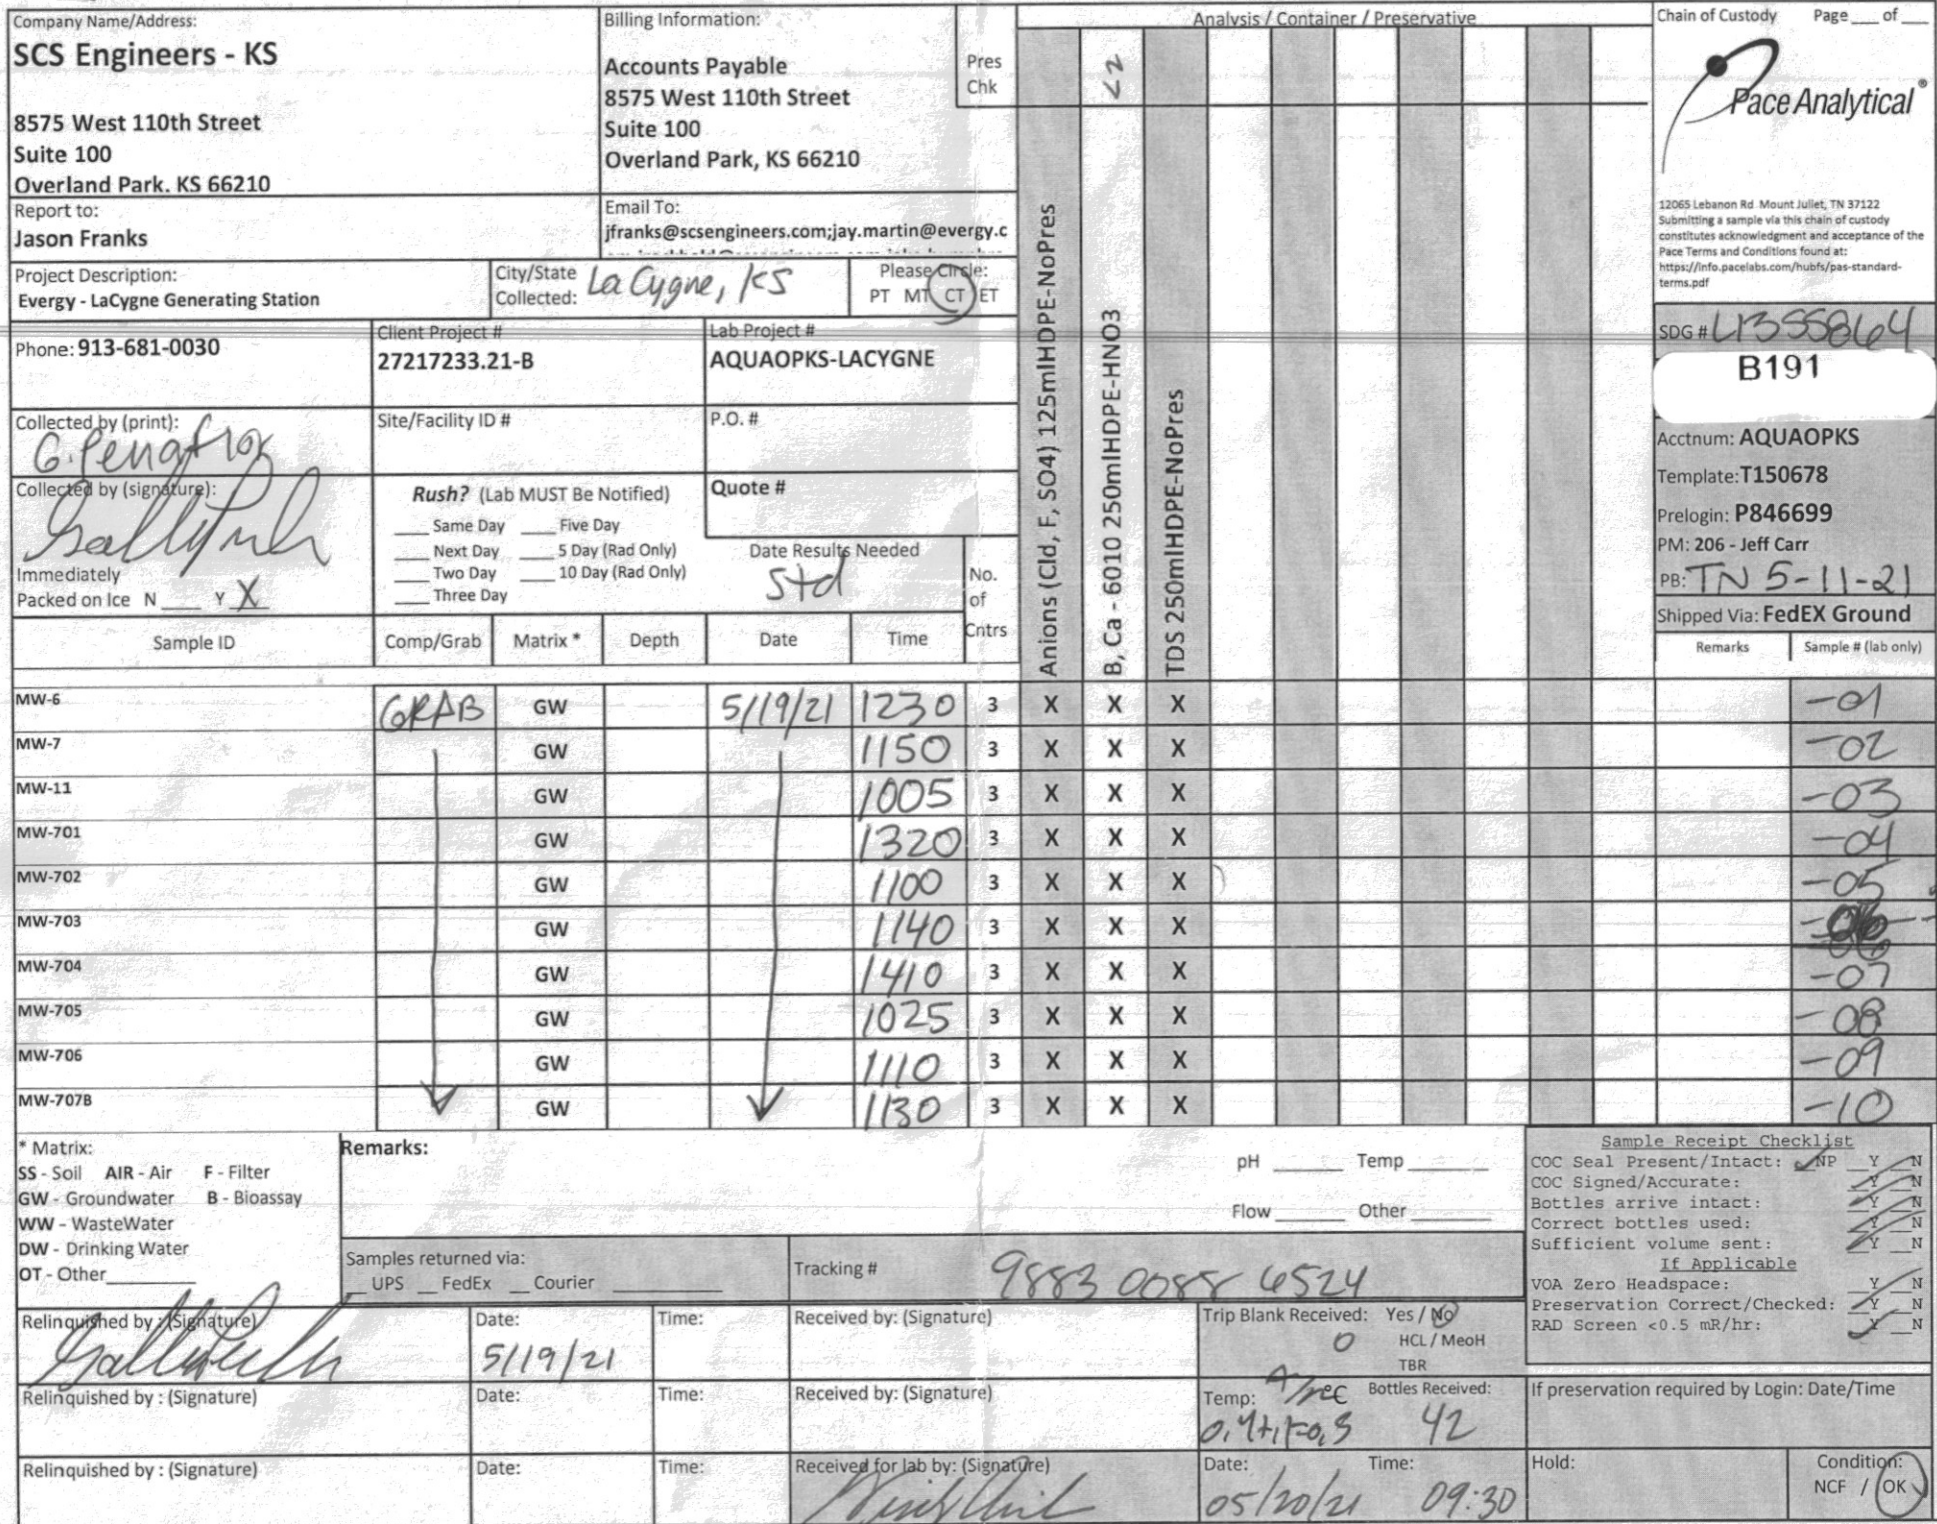 Company Name/Address:
SCS Engineers - KS
8575 West 110th Street
Suite 100
Overland Park. KS 66210
Billing Information:
Accounts Payable
8575 West 110th Street
Suite 100
Overland Park, KS 66210
Pres
Chk
Analysis / Container / Preservative
<2
Anions (Cld, F, SO4) 125mlHDPE-NoPres
B, Ca - 6010 250mlHDPE-HNO3
TDS 250mlHDPE-NoPres
Chain of Custody Page ___ of ___
Pace Analytical ®
12065 Lebanon Rd Mount Juliet, TN 37122
Submitting a sample via this chain of custody
constitutes acknowledgment and acceptance of the
Pace Terms and Conditions found at:
https://info.pacelabs.com/hubfs/pas-standard-
terms.pdf
Report to:
Jason Franks
Email To:
jfranks@scsengineers.com;jay.martin@evergy.c
Project Description:
Evergy - LaCygne Generating Station
City/State
Collected: La Cygne, KS
Please Circle:
PT MT CT ET
SDG # L1355864
B191
Phone: 913-681-0030
Client Project #
27217233.21-B
Lab Project #
AQUAOPKS-LACYGNE
Collected by (print):
G. Penaflor
Site/Facility ID #
P.O. #
Acctnum: AQUAOPKS
Template: T150678
Prelogin: P846699
PM: 206 - Jeff Carr
PB: TN 5-11-21
Shipped Via: FedEX Ground
Collected by (signature):
Rush? (Lab MUST Be Notified)
___ Same Day ___ Five Day
___ Next Day ___ 5 Day (Rad Only)
___ Two Day ___ 10 Day (Rad Only)
___ Three Day
Quote #
Date Results Needed
Std
Immediately
Packed on Ice N ___ Y X
No.
of
Cntrs
Sample ID Comp/Grab Matrix * Depth Date Time Remarks Sample # (lab only)
MW-6 GRAB GW 5/19/21 1230 3 X X X -01
MW-7 GW 1150 3 X X X -02
MW-11 GW 1005 3 X X X -03
MW-701 GW 1320 3 X X X -04
MW-702 GW 1100 3 X X X -05
MW-703 GW 1140 3 X X X -06
MW-704 GW 1410 3 X X X -07
MW-705 GW 1025 3 X X X -08
MW-706 GW 1110 3 X X X -09
MW-707B GW 1130 3 X X X -10
* Matrix:
SS - Soil AIR - Air F - Filter
GW - Groundwater B - Bioassay
WW - WasteWater
DW - Drinking Water
OT - Other
Remarks:
pH ___ Temp ___
Flow ___ Other ___
Sample Receipt Checklist
COC Seal Present/Intact: NP Y N
COC Signed/Accurate: Y N
Bottles arrive intact: Y N
Correct bottles used: Y N
Sufficient volume sent: Y N
If Applicable
VOA Zero Headspace: Y N
Preservation Correct/Checked: Y N
RAD Screen <0.5 mR/hr: Y N
Samples returned via:
__ UPS __ FedEx __ Courier
Tracking # 9883 0088 6524
Relinquished by : (Signature)
Date:
5/19/21
Time:
Received by: (Signature)
Trip Blank Received: Yes / No
0
HCL / MeoH
TBR
Relinquished by : (Signature)
Date:
Time:
Received by: (Signature)
Temp:
Bottles Received:
42
If preservation required by Login: Date/Time
Relinquished by : (Signature)
Date:
Time:
Received for lab by: (Signature)
Date:
05/20/21
Time:
09:30
Hold:
Condition:
NCF / OK